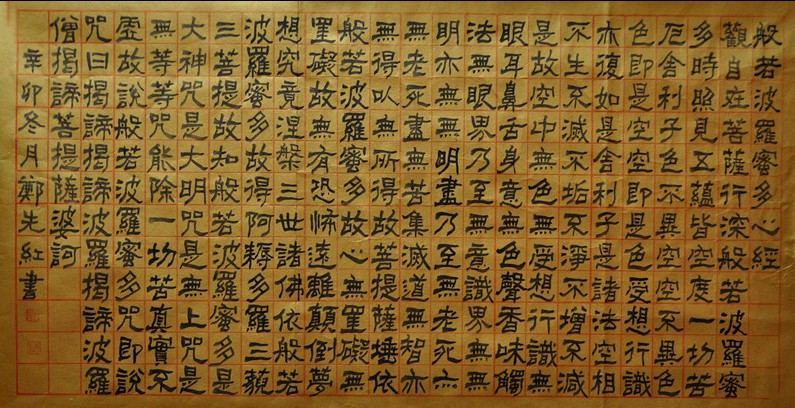 般若波羅蜜多心經
觀自在菩薩行深般若波羅蜜
多時照見五蘊皆空度一切苦
厄舍利子色不異空空不異色
色即是空空即是色受想行識
亦復如是舍利子是諸法空相
不生不滅不垢不淨不增不減
是故空中無色無受想行識無
眼耳鼻舌身意無色聲香味觸
法無眼界乃至無意識界無無
明亦無無明盡乃至無老死亦
無老死盡無苦集滅道無智亦
無得以無所得故菩提薩埵依
般若波羅蜜多故心無罣礙無
罣礙故無有恐怖遠離顛倒夢
想究竟涅槃三世諸佛依般若
波羅蜜多故得阿耨多羅三藐
三菩提故知般若波羅蜜多是
大神咒是大明咒是無上咒是
無等等咒能除一切苦真實不
虛故說般若波羅蜜多咒即說
咒曰揭諦揭諦波羅揭諦波羅
僧揭諦菩提薩婆訶
辛卯冬月鄭先紅書